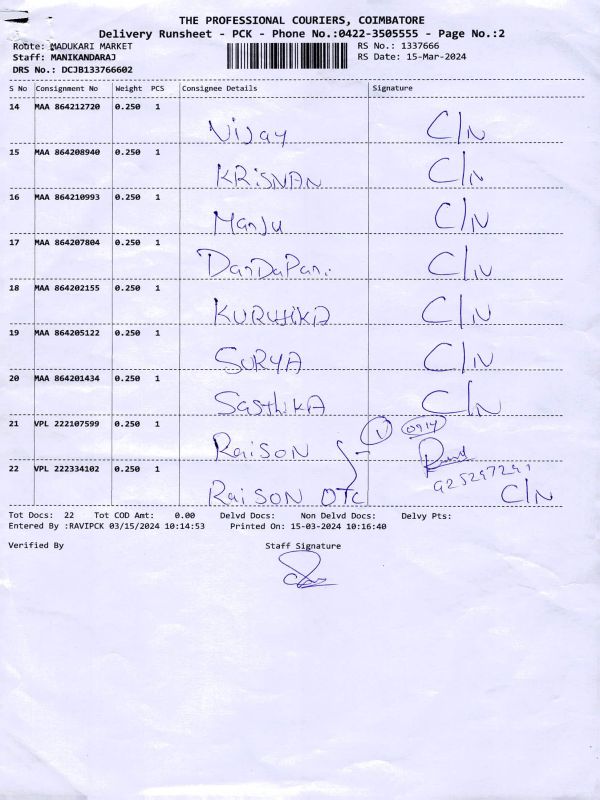 THE PROFESSIONAL COURIERS, COIMBATORE
Delivery Runsheet - PCK - Phone No.:0422-3505555 - Page No.:2
Route: MADUKARI MARKET RS No.: 1337666
Staff: MANIKANDARAJ RS Date: 15-Mar-2024
DRS No.: DCJB133766602
S No Consignment No Weight PCS Consignee Details Signature
14 MAA 864212720 0.250 1 Vijay C/N
15 MAA 864208940 0.250 1 KRISNAN C/N
16 MAA 864210993 0.250 1 Manju C/N
17 MAA 864207804 0.250 1 DanDaPani C/N
18 MAA 864202155 0.250 1 C/N
19 MAA 864205122 0.250 1 SURYA C/N
20 MAA 864201434 0.250 1 SasthikA C/N
21 VPL 222107599 0.250 1 RaiSON 1 0914
22 VPL 222334102 0.250 1 RaiSON OTC C/N
Tot Docs: 22 Tot COD Amt: 0.00 Delvd Docs: Non Delvd Docs: Delvy Pts:
Entered By :RAVIPCK 03/15/2024 10:14:53 Printed On: 15-03-2024 10:16:40
Verified By Staff Signature